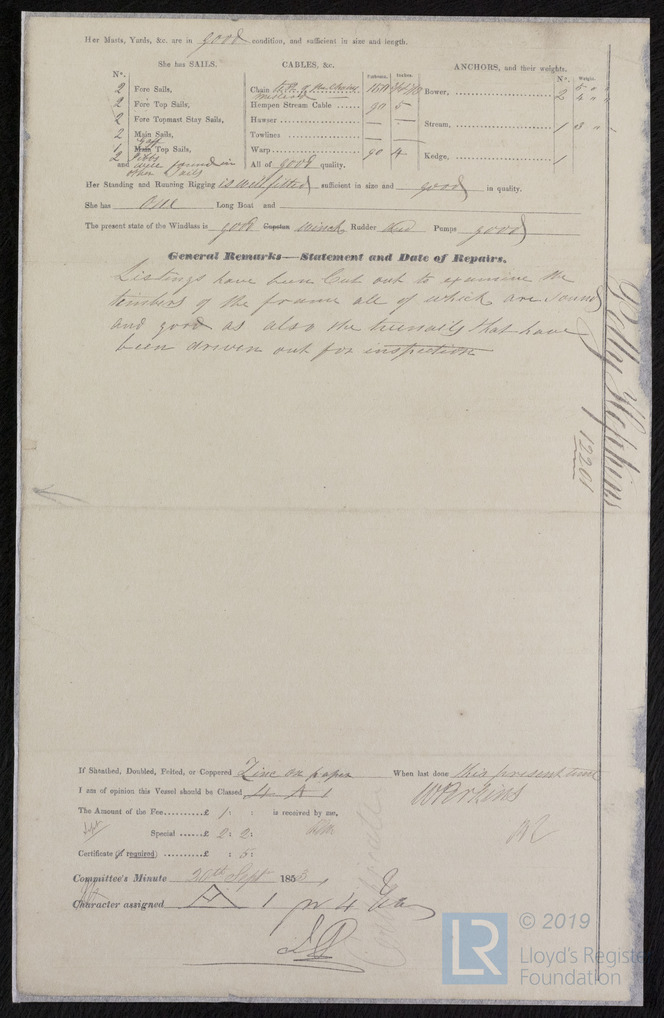 Her Masts, Yards, &c. are in good condition, and sufficient in size and length.
She has SAILS.
Nº.
2 Fore Sails,
2 Fore Top Sails,
2 Fore Topmast Stay Sails,
2 Main Sails,
1 Main Gaff Top Sails,
2 Jibbs
and well found in
other Sails
CABLES, &c. Fathoms. Inches.
Chain
Hempen Stream Cable ...... 90 5
Hawser ......
Towlines ......
Warp ...... 90 4
All of good quality.
ANCHORS, and their weights.
Nº. Weight.
Bower, ...... 2
Stream, ...... 1 3
Kedge, ...... 1
Her Standing and Running Rigging is well fitted sufficient in size and good in quality.
She has One Long Boat and
The present state of the Windlass is good Capstan Winch Rudder Pumps good
General Remarks—Statement and Date of Repairs.
Listings have been Cut out to examine the
timbers of the frame all of which are sound
and good as also the treenails that have
been driven out for inspection
12201
If Sheathed, Doubled, Felted, or Coppered Zinc on paper When last done this present time
I am of opinion this Vessel should be Classed 4 A 1
W Perkins
The Amount of the Fee......£ 1 : : is received by me,
Sept
Special ......£ 2 : 2 :
Certificate (if required) ..........£ : 5 :
Committee's Minute 20th Sept 1853
Character assigned A 1 for 4 Yrs
© 2019
LR
Lloyd's Register
Foundation